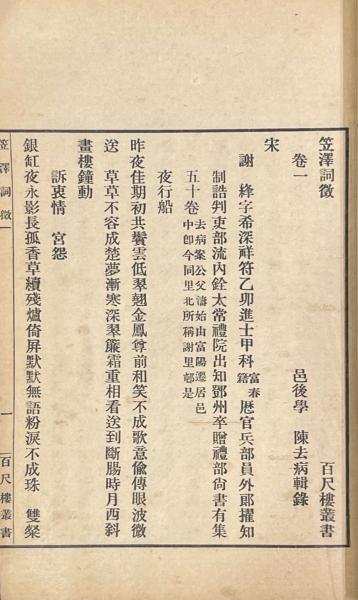 笠澤詞徵　百尺樓叢書
卷一　邑後學　陳去病輯錄
宋
謝　絳字希深祥符乙卯進士甲科富春籍歷官兵部員外郎擢知
制誥判吏部流內銓太常禮院出知鄧州卒贈禮部尙書有集
五十卷去病案公父濤始由富陽遷居邑中卽今同里北所稱謝里邨是
夜行船
昨夜佳期初共鬢雲低翠翹金鳳尊前和笑不成歌意偸傳眼波微
送　草草不容成楚夢漸寒深翠簾霜重相看送到斷腸時月西斜
畫樓鐘動
訴衷情　宮怨
銀缸夜永影長孤香草續殘爐倚屏默默無語粉淚不成珠　雙粲
笠澤詞徵一　一　百尺樓叢書